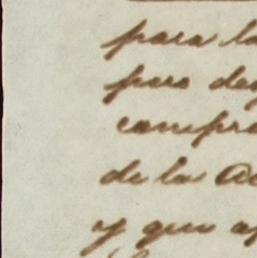 para la
pero de
compre
de la
y que